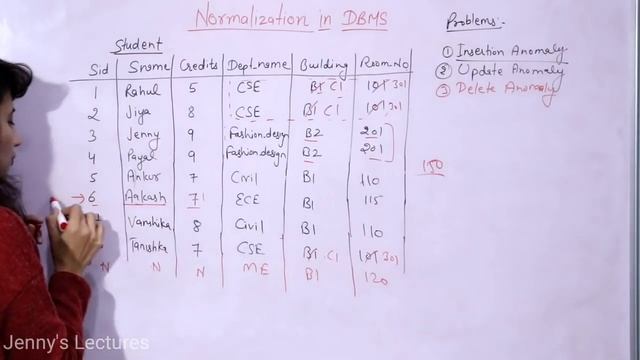 Normalization in DBMS
Problems:-
① Insertion Anomaly
② Update Anomaly
③ Delete Anomaly
Student
Sid Sname Credits Dept_name Building Room.No
1 Rahul 5 CSE B1 C1 101 301
2 Jiya 8 CSE B1 C1 101 301
3 Jenny 9 Fashion.design B2 201
4 Payal 9 Fashion.design B2 201
150
5 Ankur 7 Civil B1 110
→ 6 Aakash 7 ECE B1 115
Vanshika 8 Civil B1 110
Tanishka 7 CSE B1 C1 101 301
N N N ME B1 120
Jenny's Lectures